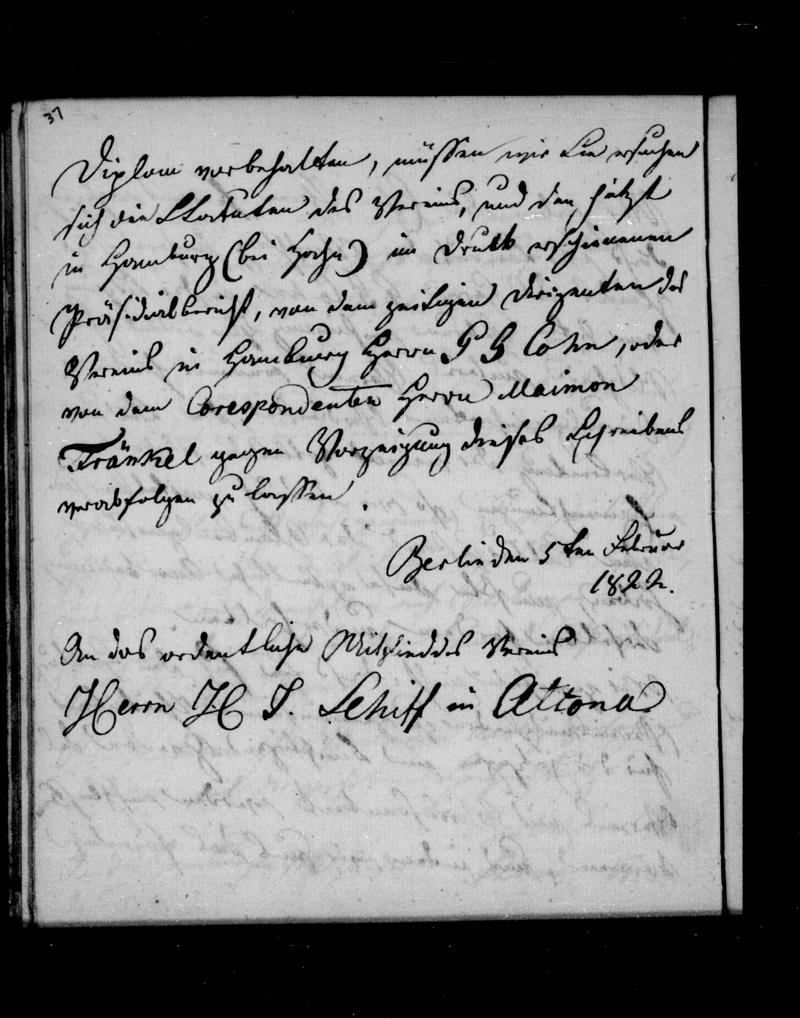 37
Diplom vorbehalten, müssen wir Sie ersuchen
sich die Statuten des Vereins, und den jetzt
in Hamburg (bei Hahn) im Druck erschienenen
Präsidialbericht, von dem zeitigen Dirigenten des
Vereins in Hamburg Herrn G G Cohn, oder
von dem Corespondenten Herrn Maimon
Fränkel gegen Vorzeigung dieses Schreibens
verabfolgen zu lassen.
Berlin den 5ten Februar
1822.
An das ordentliche Mitglied des Vereins
Herrn H S. Schiff in Altona